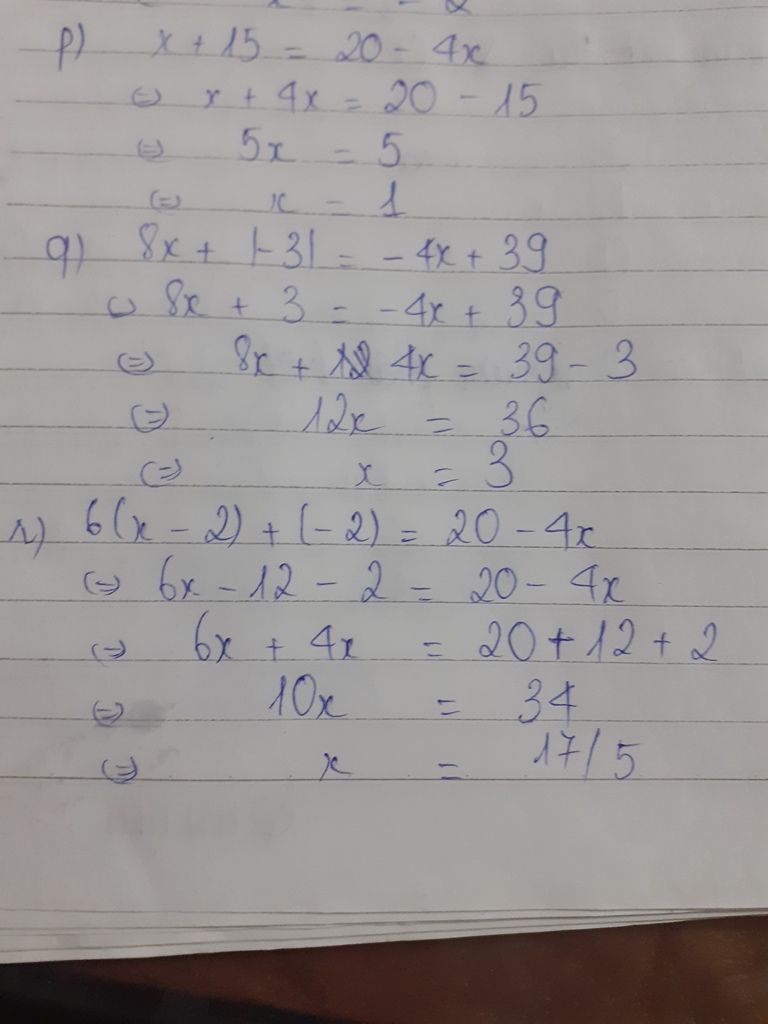 = - 2
p) x + 15 = 20 - 4x
⇔ x + 4x = 20 - 15
⇔ 5x = 5
⇔ x = 1
q) 8x + |-3| = -4x + 39
⇔ 8x + 3 = -4x + 39
⇔ 8x + 4x = 39 - 3
⇔ 12x = 36
⇔ x = 3
r) 6(x - 2) + (-2) = 20 - 4x
⇔ 6x - 12 - 2 = 20 - 4x
⇔ 6x + 4x = 20 + 12 + 2
⇔ 10x = 34
⇔ x = 17/5